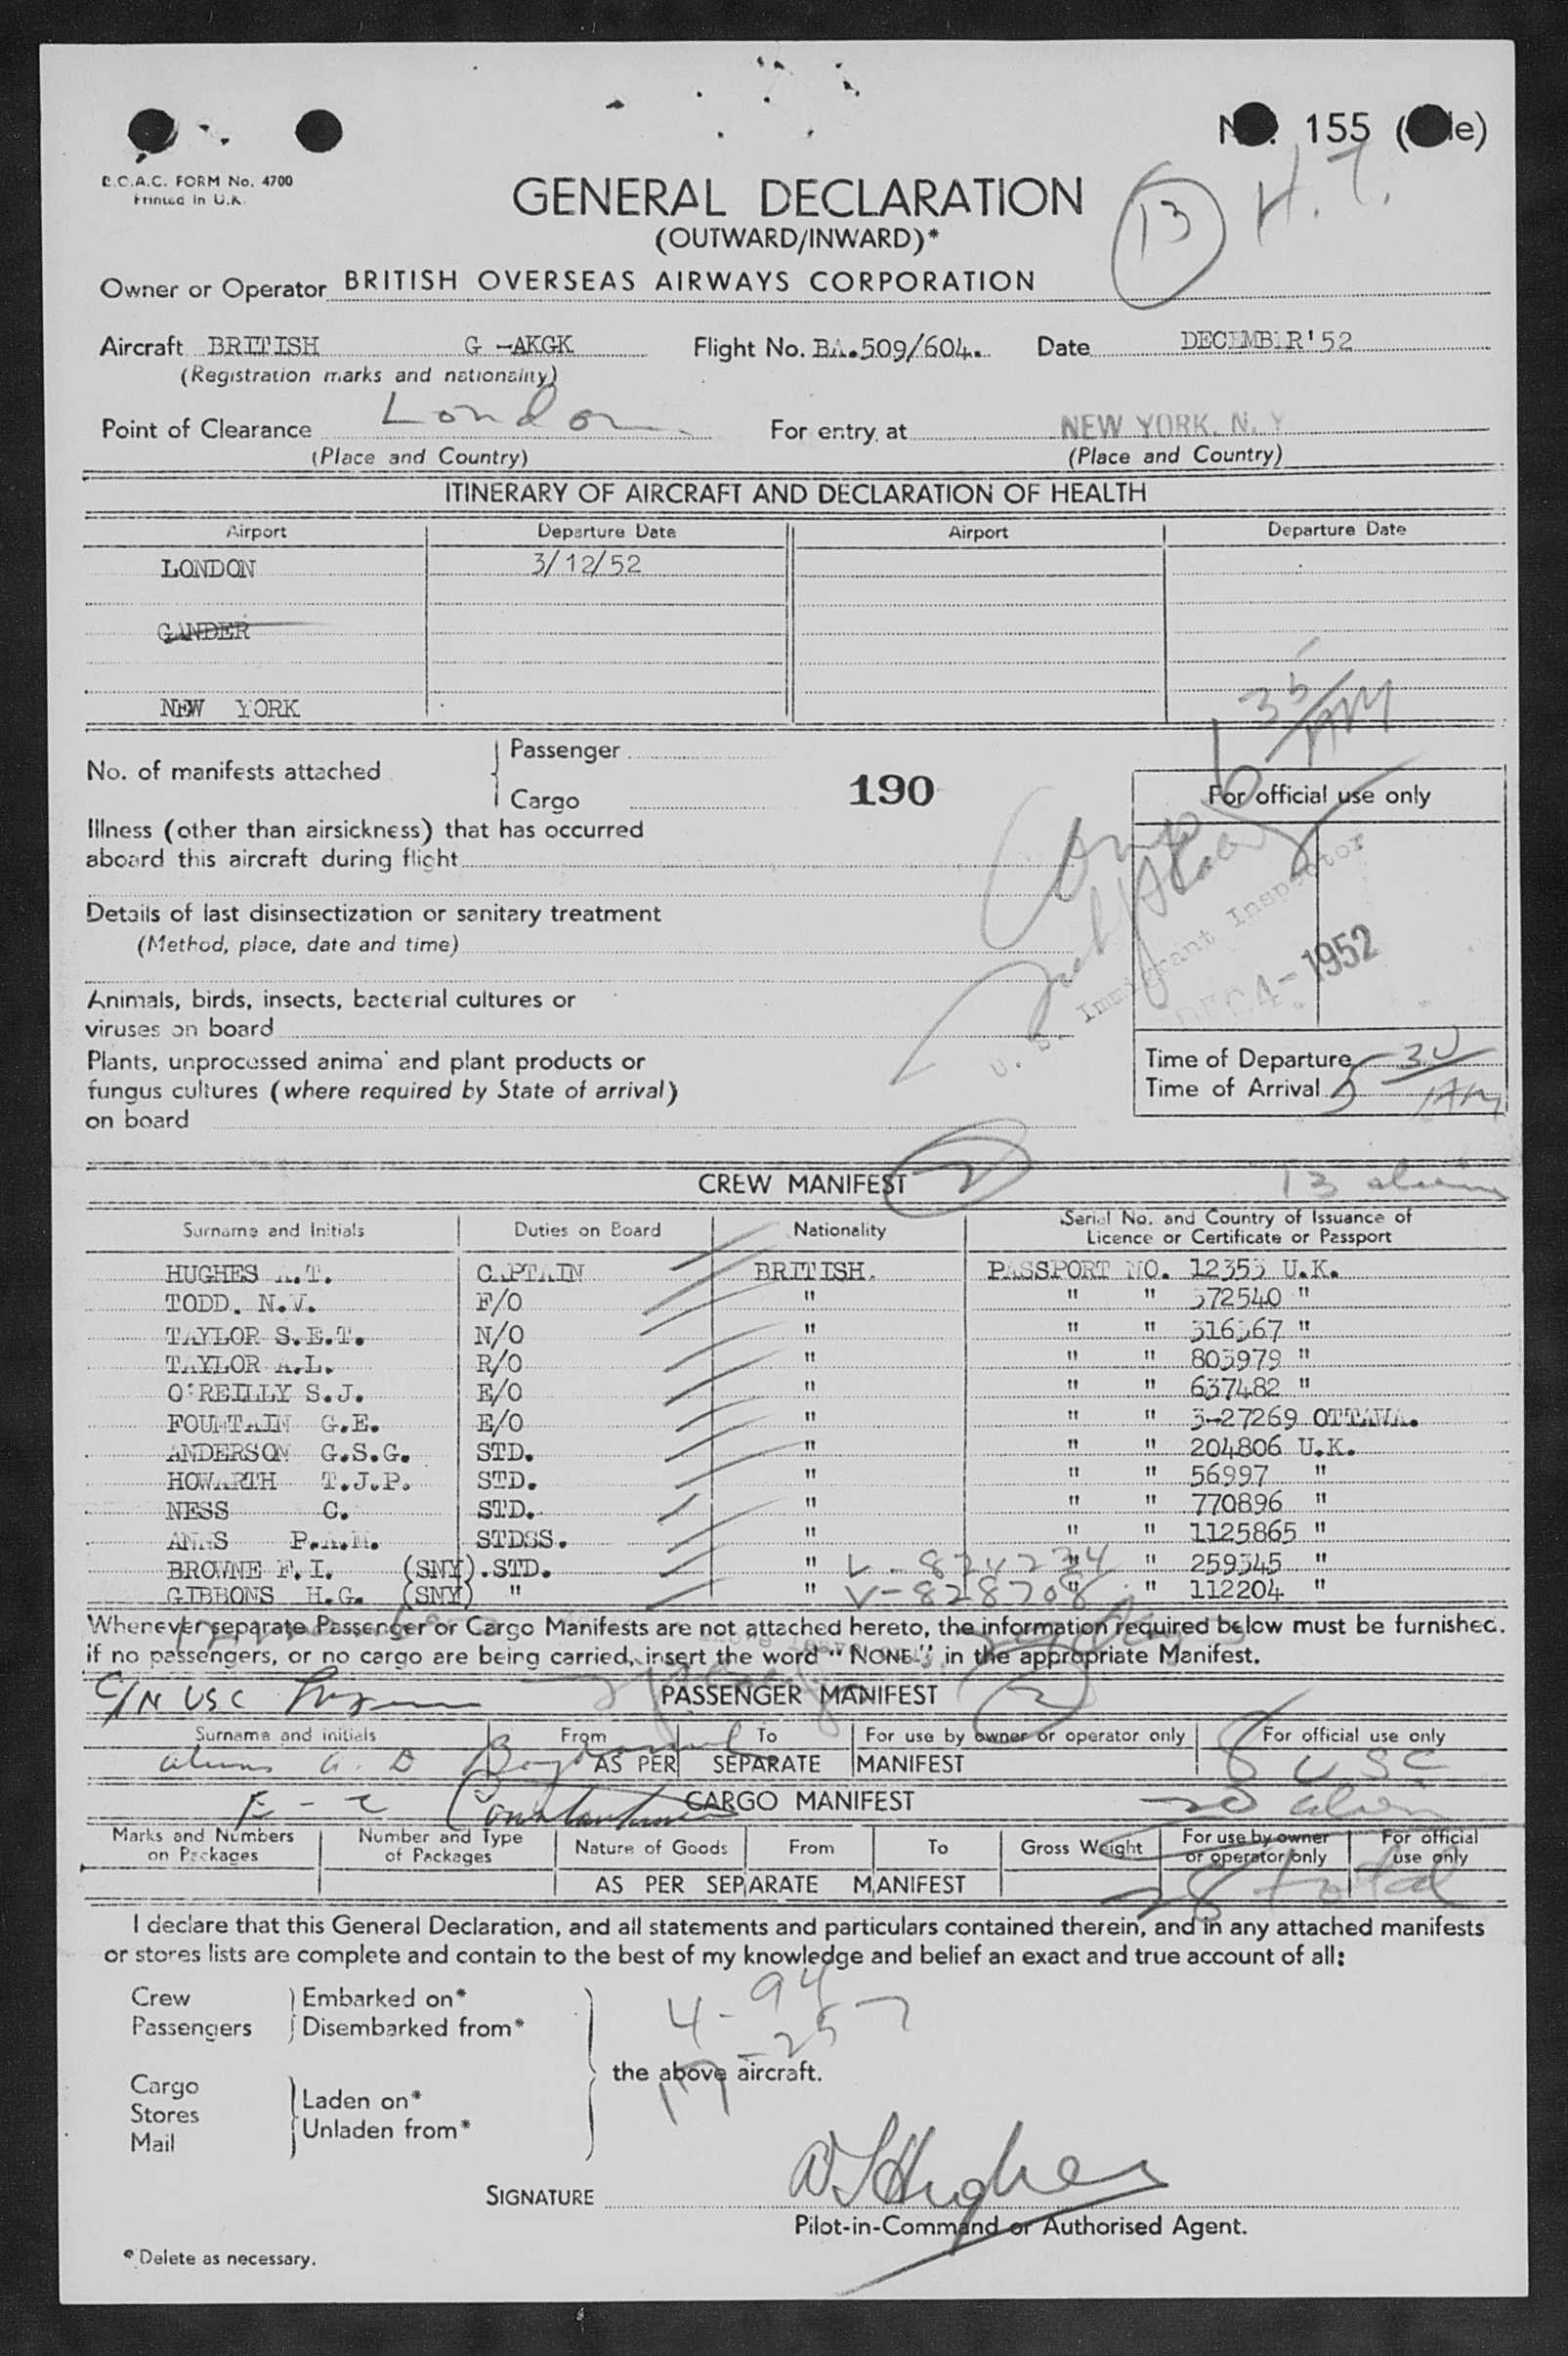 155
B.O.A.C. FORM No. 4700
Printed in U.K.
GENERAL DECLARATION
(OUTWARD/INWARD)*
13
H.T.
Owner or Operator BRITISH OVERSEAS AIRWAYS CORPORATION
Aircraft BRITISH G -AKGK Flight No. BA.509/604. Date DECEMBER'52
(Registration marks and nationality)
Point of Clearance London For entry at NEW YORK, N.Y
(Place and Country) (Place and Country)
ITINERARY OF AIRCRAFT AND DECLARATION OF HEALTH
Airport Departure Date Airport Departure Date
LONDON 3/12/52
GANDER
NEW YORK
6 35 AM
No. of manifests attached Passenger
190
Cargo
For official use only
Illness (other than airsickness) that has occurred
aboard this aircraft during flight
Details of last disinsectization or sanitary treatment
(Method, place, date and time)
U. S. Immigrant Inspector
DEC 4 - 1952
Animals, birds, insects, bacterial cultures or
viruses on board
Plants, unprocessed animal and plant products or
fungus cultures (where required by State of arrival)
on board
Time of Departure
Time of Arrival 5 30 AM
CREW MANIFEST 2 13 aliens
Surname and Initials Duties on Board Nationality Serial No. and Country of Issuance of
Licence or Certificate or Passport
HUGHES A.T. CAPTAIN BRITISH. PASSPORT NO. 12353 U.K.
TODD. N.V. F/O " " " 372540 "
TAYLOR S.E.T. N/O " " " 316367 "
TAYLOR A.L. R/O " " " 803979 "
O'REILLY S.J. E/O " " " 637482 "
FOUNTAIN G.E. E/O " " " 3-27269 OTTAWA.
ANDERSON G.S.G. STD. " " " 204806 U.K.
HOWARTH T.J.P. STD. " " " 56997 "
NESS C. STD. " " " 770896 "
P.A.M. STDSS. " " " 1125865 "
BROWNE F.I. (SNY).STD. " V-824234 " " 259345 "
GIBBONS H.G. (SNY) " " V-828708 " " 112204 "
Whenever separate Passenger or Cargo Manifests are not attached hereto, the information required below must be furnished.
if no passengers, or no cargo are being carried, insert the word "NONE" in the appropriate Manifest.
C/N USC
PASSENGER MANIFEST 2
Surname and initials From To For use by owner or operator only For official use only
aliens
AS PER SEPARATE MANIFEST
8 USC
CARGO MANIFEST
20 alien
Marks and Numbers on Packages Number and Type of Packages Nature of Goods From To Gross Weight For use by owner or operator only For official use only
AS PER SEPARATE MANIFEST
28 total
I declare that this General Declaration, and all statements and particulars contained therein, and in any attached manifests
or stores lists are complete and contain to the best of my knowledge and belief an exact and true account of all:
Crew Embarked on*
Passengers Disembarked from*
4-94
-257
17
the above aircraft.
Cargo
Stores Laden on*
Mail Unladen from*
SIGNATURE A T Hughes
Pilot-in-Command or Authorised Agent.
* Delete as necessary.